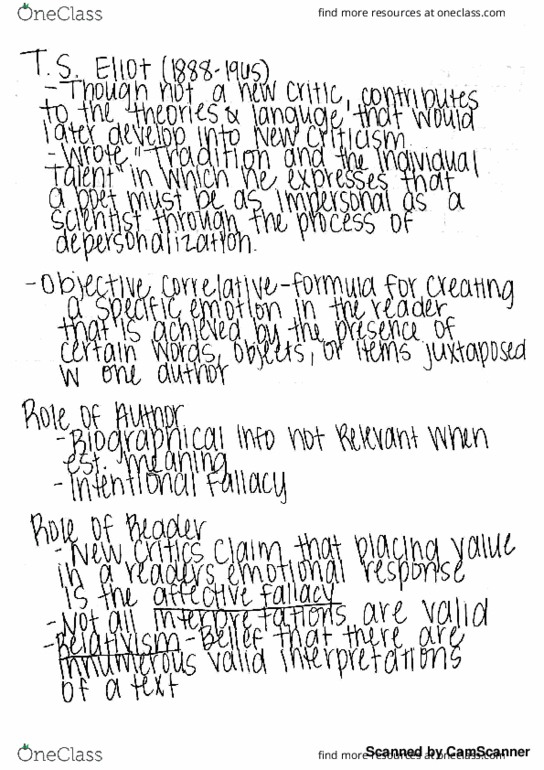 OneClass
find more resources at oneclass.com
T.S. Eliot (1888-1965)
-Though not a new critic, contributes
to the theories & languge that would
later develop into New Criticism.
-Wrote "Tradition and the Individual
Talent" in which he expresses that
a poet must be as impersonal as a
scientist through the process of
depersonalization.
-Objective Correlative-formula for creating
a specific emotion in the reader
that is achieved by the presence of
certain words, objects, or items juxtaposed
w one author
Role of Author
-Biographical info not Relevant when
est. meaning
-Intentional Fallacy
Role of Reader
-New Critics claim that placing value
in a readers emotional response
is the affective fallacy
-Not all interpretations are valid
-Relativism-Belief that there are
innumerous valid interpretations
of a text
OneClass
find more resources at oneclass.com
Scanned by CamScanner